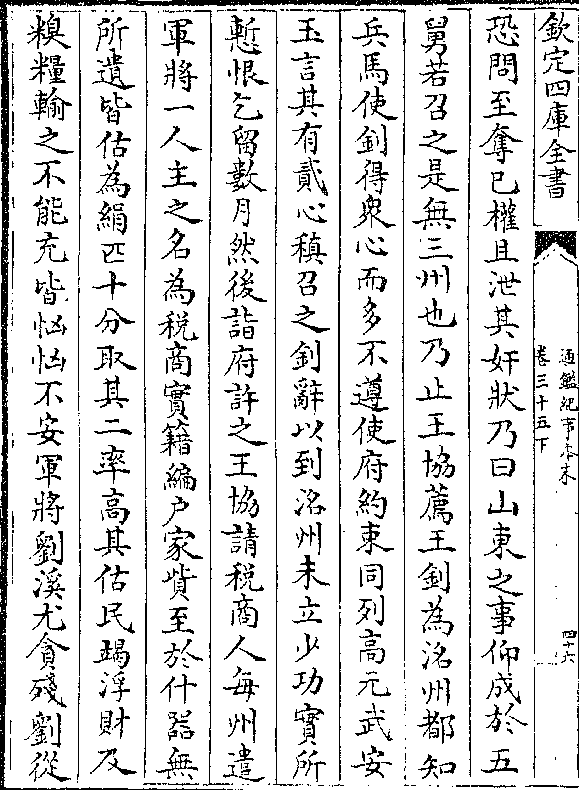 欽定四庫全書
通鑑紀事本末
卷三十五下
四十六
恐問至奪已權且泄其奸狀乃曰山東之事仰成於五
舅若召之是無三州也乃止王協薦王釗為洺州都知
兵馬使釗得衆心而多不遵使府約束同列高元武安
玉言其有貳心稹召之釗辭以到洺州未立少功實所
慙恨乞留數月然後詣府許之王協請税商人每州遣
軍將一人主之名為税商實籍編户家貲至於什器無
所遺皆估為絹匹十分取其二率高其估民竭浮財及
糗糧輸之不能充皆恟恟不安軍將劉溪尤貪殘劉從